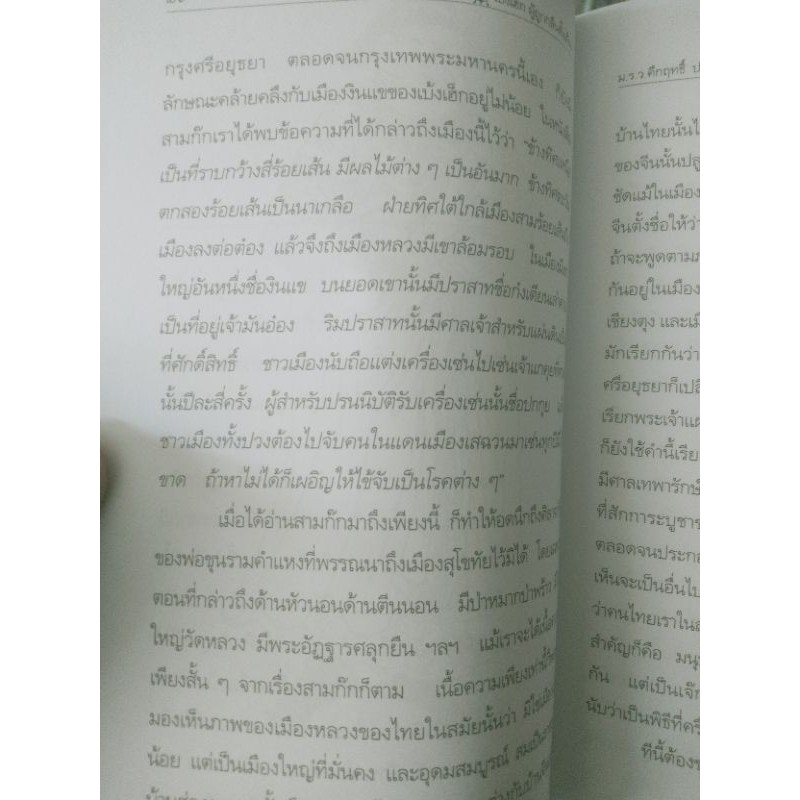 เบ้งเฮ็ก ผู้ถูกกลืนทั้งเป็น
กรุงศรีอยุธยา ตลอดจนกรุงเทพพระมหานครนี้เอง ก็ยังมี
ลักษณะคล้ายคลึงกับเมืองงินแขของเบ้งเฮ็กอยู่ไม่น้อย ในหนังสือ
สามก๊กเราได้พบข้อความที่ได้กล่าวถึงเมืองนี้ไว้ว่า "ข้างทิศเหนือ
เป็นที่ราบกว้างสี่ร้อยเส้น มีผลไม้ต่าง ๆ เป็นอันมาก ข้างทิศตะวัน
ตกสองร้อยเส้นเป็นนาเกลือ ฝ่ายทิศใต้ใกล้เมืองสามร้อยเส้น
เมืองลงต่อต๋อง แล้วจึงถึงเมืองหลวงมีเขาล้อมรอบ ในเมือง
ใหญ่อันหนึ่งชื่องินแข บนยอดเขานั้นมีปราสาทชื่อก๋งเตียน
เป็นที่อยู่เจ้ามันอ๋อง ริมปราสาทนั้นมีศาลเจ้าสำหรับแผ่นดิน
ที่ศักดิ์สิทธิ์ ชาวเมืองนับถือแต่งเครื่องเซ่นไปเซ่นเจ้า
นั้นปีละสี่ครั้ง ผู้สำหรับปรนนิบัติรับเครื่องเซ่นนั้นชื่อปกกุย
ชาวเมืองทั้งปวงต้องไปจับคนในแดนเมืองเสฉวนมาเซ่นทุกปีมิได้
ขาด ถ้าหาไม่ได้ก็เผอิญให้ไข้จับเป็นโรคต่าง ๆ"
เมื่อได้อ่านสามก๊กมาถึงเพียงนี้ ก็ทำให้อดนึกถึงศิลาจารึก
ของพ่อขุนรามคำแหงที่พรรณนาถึงเมืองสุโขทัยไว้มิได้ โดย
ตอนที่กล่าวถึงด้านหัวนอนด้านตีนนอน มีป่าหมากป่าพร้าว
ใหญ่วัดหลวง มีพระอัฏฐารศลุกยืน ฯลฯ แม้เราจะได้เนื้อ
เพียงสั้น ๆ จากเรื่องสามก๊กก็ตาม เนื้อความเพียงเท่านี้ก็
มองเห็นภาพของเมืองหลวงของไทยในสมัยนั้นว่า มิใช่เมือง
น้อย แต่เป็นเมืองใหญ่ที่มั่นคง และอุดมสมบูรณ์ สมเป็น
ม.ร.ว.คึกฤทธิ์ ป
บ้านไทยนั้นไ
ของจีนนั้นปลู
ชัดแม้ในเมือง
จีนตั้งชื่อให้ว่า
ถ้าจะพูดตามภ
กันอยู่ในเมือง
เชียงตุง และเมื
มักเรียกกันว่า
ศรีอยุธยาก็เปลี
เรียกพระเจ้าแผ
ก็ยังใช้คำนี้เรีย
มีศาลเทพารักษ์
ที่สักการะบูชาข
ตลอดจนประกอ
เห็นจะเป็นอื่นไป
ว่าคนไทยเราในส
สำคัญก็คือ มนุ
กัน แต่เป็นเจ๊ก
นับว่าเป็นพิธีที่ครึ
ทีนี้ต้องข